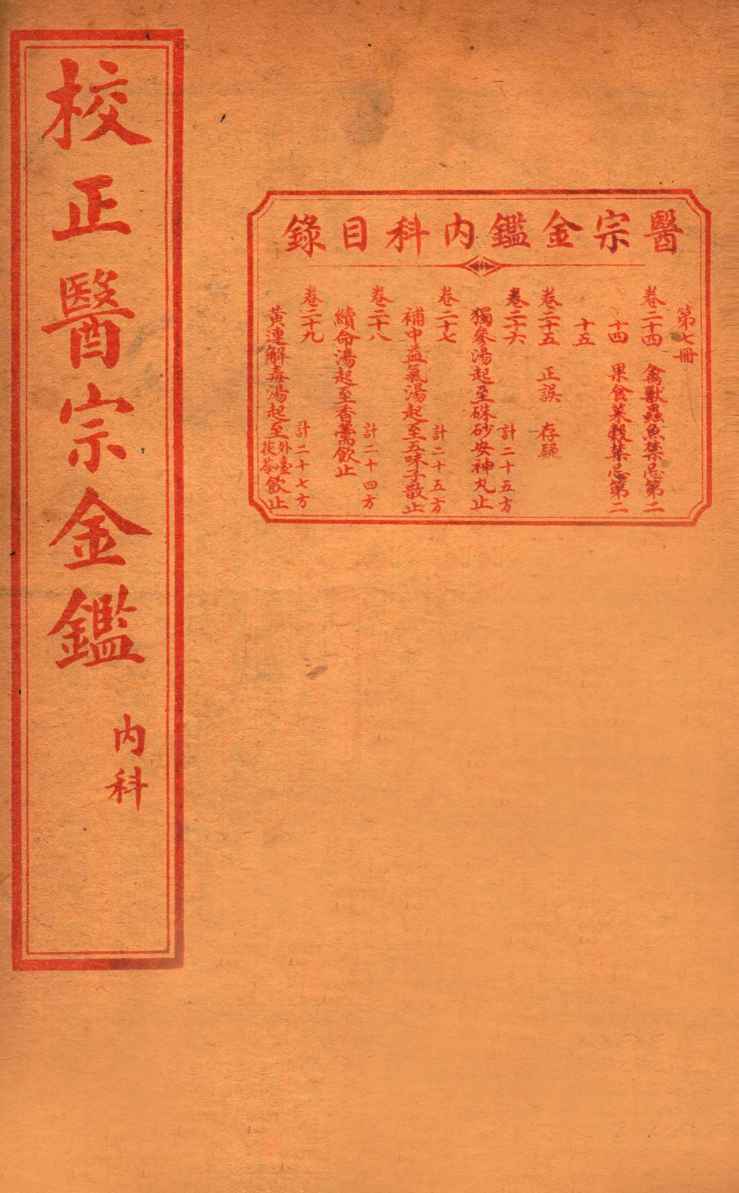 校正醫宗金鑑
內科
醫宗金鑑內科目錄
第七冊
卷二十四 禽獸蟲魚禁忌第二
十四 果食菜穀禁忌第二
十五
卷二十五 正誤 存疑
卷二十六 計二十五方
獨參湯起至硃砂安神丸止
卷二十七 計二十五方
補中益氣湯起至五味子散止
卷二十八 計二十四方
續命湯起至香薷飲止
卷二十九 計二十七方
黃連解毒湯起至外臺茯苓飲止